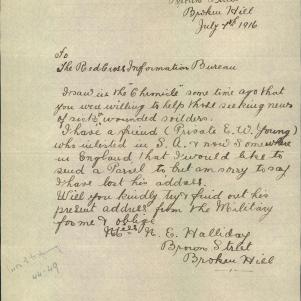 Brown Street
Broken Hill
July 7th 1916
To
The Red Cross Information Bureau
I saw in the Chronicle some time ago that
you were willing to help those seeking news
of wounded soilders.
I have a friend (Private E. W. Young)
who inlested in S. A. & now Somewhere
in England that I would like to
send a Parcel to but am sorry to say
I have lost his address.
Will you kindly try & find out his
present address from the Military
for me & oblige
N. E. Halliday
Brown Street
Broken Hill
44-49